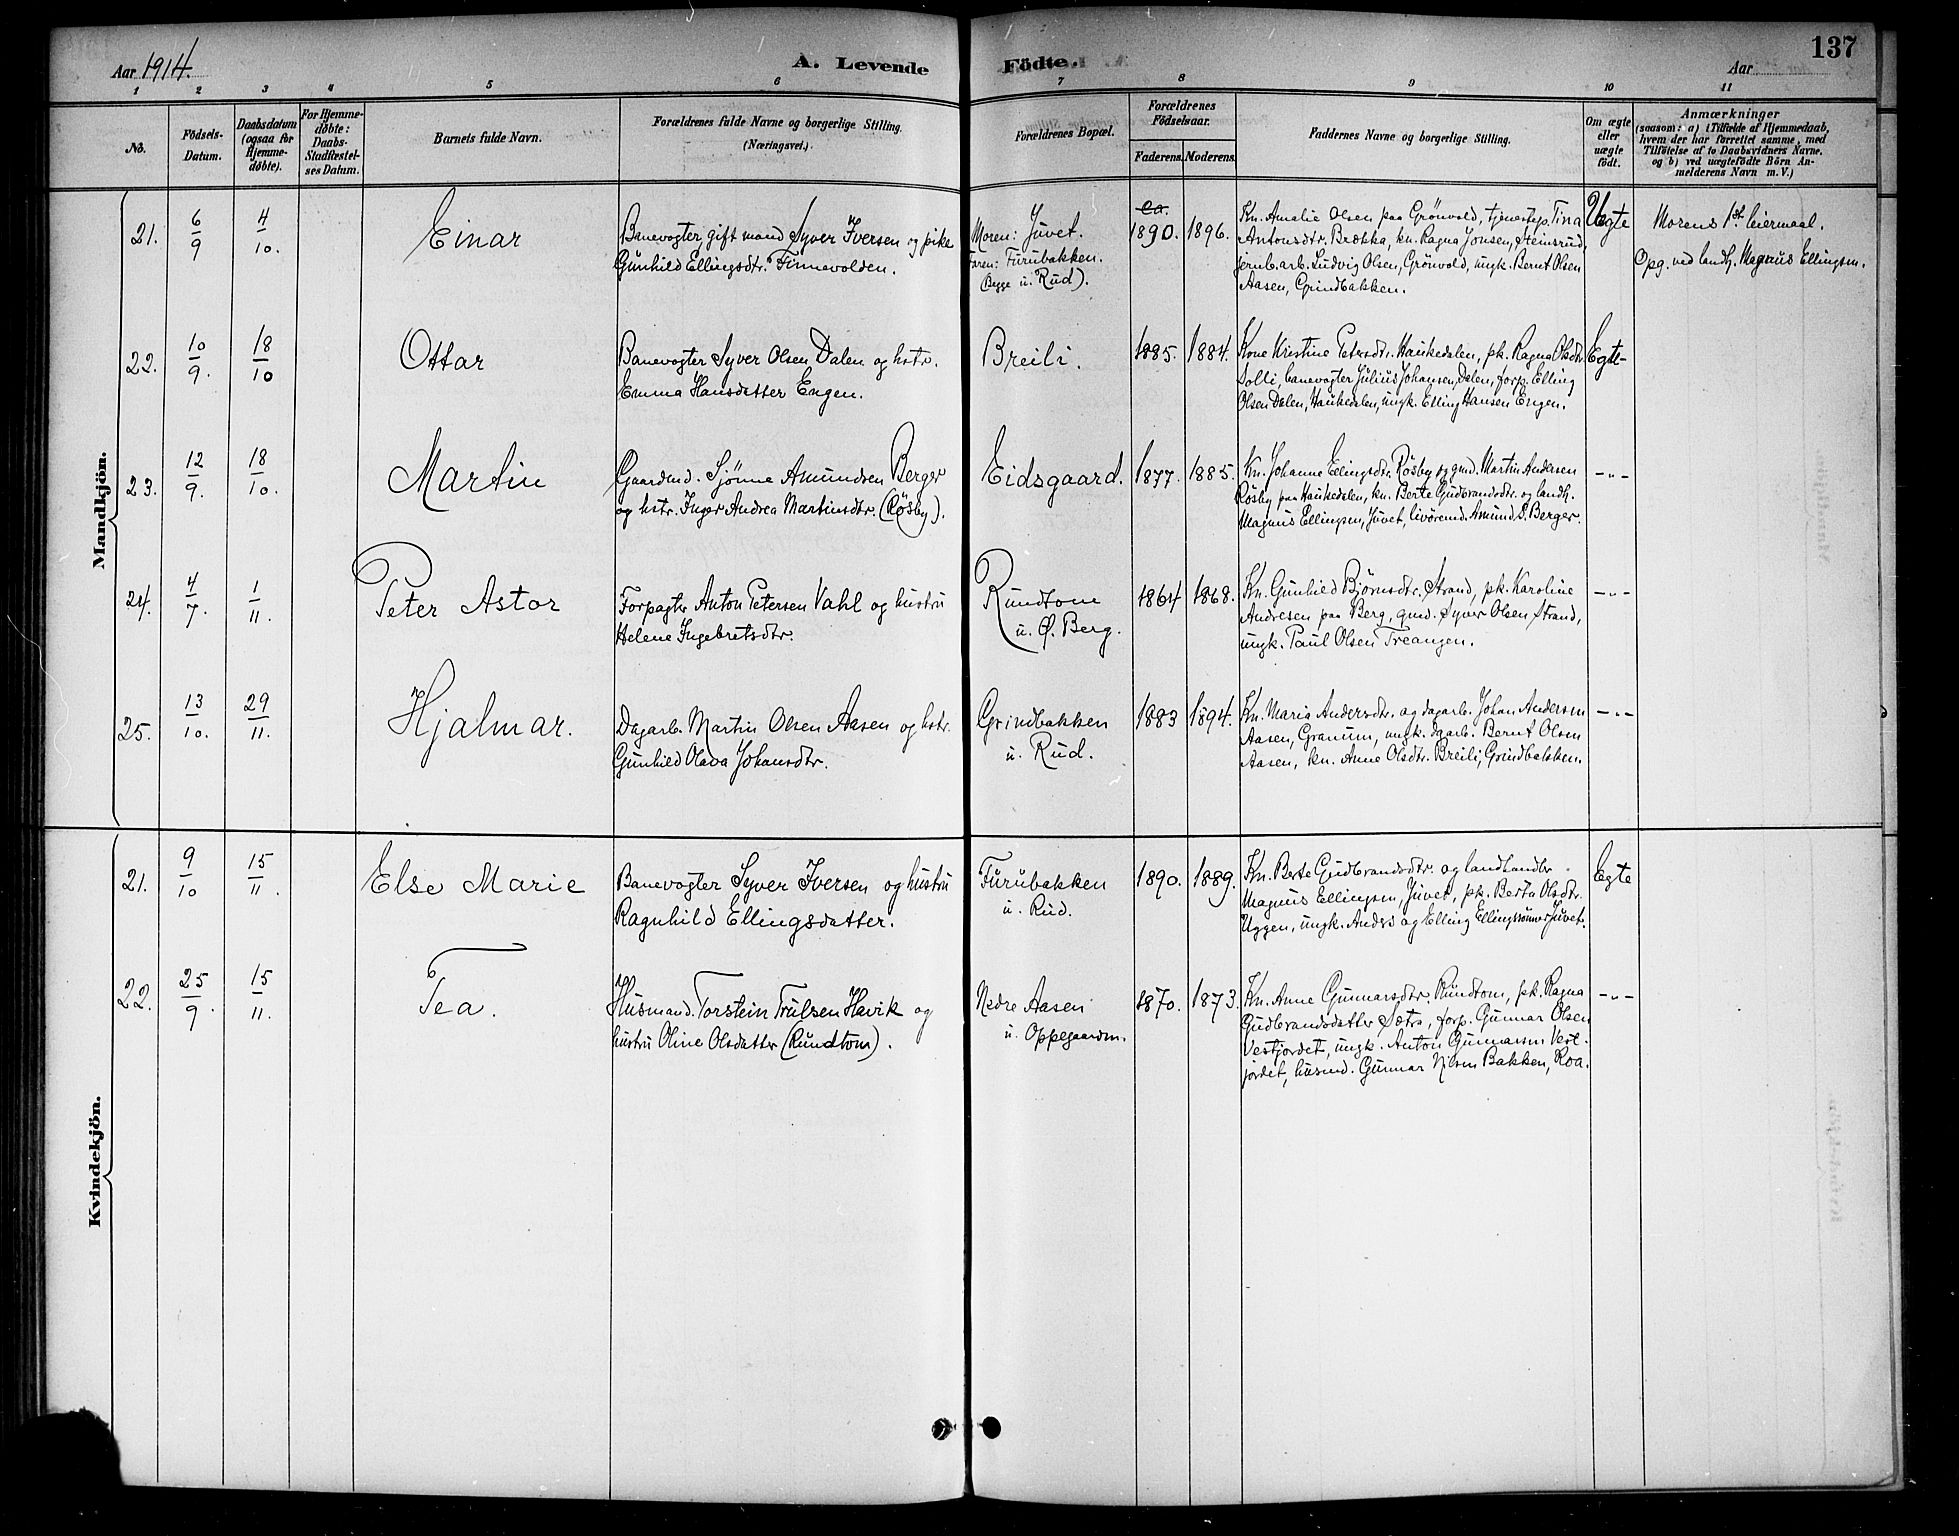 Aar 1914.
A. Levende Födte.
Aar
137
1 2 3 4 5 6 7 8 9 10 11
No.
Födsels-Datum.
Daabsdatum (ogsaa för Hjemme-döbte).
For Hjemme-döbte: Daabs-Stadfæstel-ses Datum.
Barnets fulde Navn.
Forældrenes fulde Navne og borgerlige Stilling. (Næringsvei.)
Forældrenes Bopæl.
Forældrenes Födselsaar.
Faderens. Moderens.
Faddernes Navne og borgerlige Stilling.
Om ægte eller uægte födt.
Anmærkninger
(saasom: a) i Tilfælde af Hjemmedaab,
hvem der har forrettet samme, med
Tilföielse af to Daabsvidners Navne.
og b) ved uægtefödte Börn An-
melderens Navn m. V.)
Mandkjön.
21. 6/9 4/10. Einar
Banevogter gift mand Syver Iversen og pike
Gunhild Ellingsdtr. Finnevolden.
Moren: Juvet.
Faren: Furubakken.
(Begge u. Rud).
ca. 1890. 1896.
Kn. Amalie Olsen paa Grönvold, tjenestep. Tina
Antonsdtr. Brækka, kn. Ragna Jonsen, Steinsrud,
jernb.arb. Ludvig Olsen, Grönvold, ungk. Bernt Olsen
Aasen, Grindbakken.
Uegte
Morens 1st leiermaal.
Opg. ved landh. Magnus Ellingsen.
22. 10/9. 18/10 Ottar
Banevogter Syver Olsen Dalen og hstr.
Emma Hansdatter Engen.
Breili.
1885. 1884.
Kone Kristine Petersdtr. Haukedalen, pk. Ragna Olsdtr.
Solli, banevogter Julius Johansen, Dalen, forp. Elling
Olsen Dalen, Haukedalen, ungk. Elling Hansen Engen.
Egte
23. 12/9. 18/10. Martin
Gaardmd. Sjönne Amundsen Berger
og hstr. Inger Andrea Martinsdtr. (Rösby).
Eidsgaard.
1877. 1885.
Kn. Johanne Ellingsdtr. Rösby og gmd. Martin Andersen
Rösby paa Haukedalen, kn. Berte Gudbrandsdtr. og landh.
Magnus Ellingsen, Juvet, livöremd. Amund S. Berger.
–"–
24. 4/7. 1/11. Peter Astor
Forpagter Anton Petersen Vahl og hustru
Helene Ingebretsdtr.
Rundtom
u. Ø. Berg.
1864 1868.
Kn. Gunhild Björnsdtr. Strand, pk. Karoline
Andresen paa Berg, gmd. Syver Olsen Strand,
ungk. Paul Olsen Treangen.
–"–
25. 13/10. 29/11. Hjalmar.
Dagarb. Martin Olsen Aasen og hstr.
Gunhild Olava Johansdtr.
Grindbakken
u. Rud.
1883 1894.
Kn. Maria Andersdtr. og dagarb. Johan Andersen
Aasen, Granum, ungk. dgarb. Bernt Olsen
Aasen, kn. Anne Olsdtr. Breili, Grindbakken.
–"–
Kvindekjön.
21. 9/10 15/11. Else Marie
Banevogter Syver Iversen og hustru
Ragnhild Ellingsdatter.
Furubakken
u. Rud.
1890. 1889.
Kn. Berte Gudbrandsdtr. og landhandler
Magnus Ellingsen, Juvet, pk. Berta Olsdtr.
Uggen, ungk. Anders og Elling Ellingssönner Juvet.
Egte
22. 25/9. 15/11. Tea.
Husmand. Torstein Trulsen Havik og
hustru Oline Olsdatter (Rundtom).
Nedre Aasen
u. Oppegaarden.
1870. 1873.
Kn. Anne Gunnarsdtr. Rundtom, pk. Ragna
Gudbrandsdatter Sætra, forp. Gunnar Olsen
Vestjordet, ungk. Anton Gunnarsen Vest-
jordet, husmd. Gunnar Nilsen Bakken, Roa.
–"–